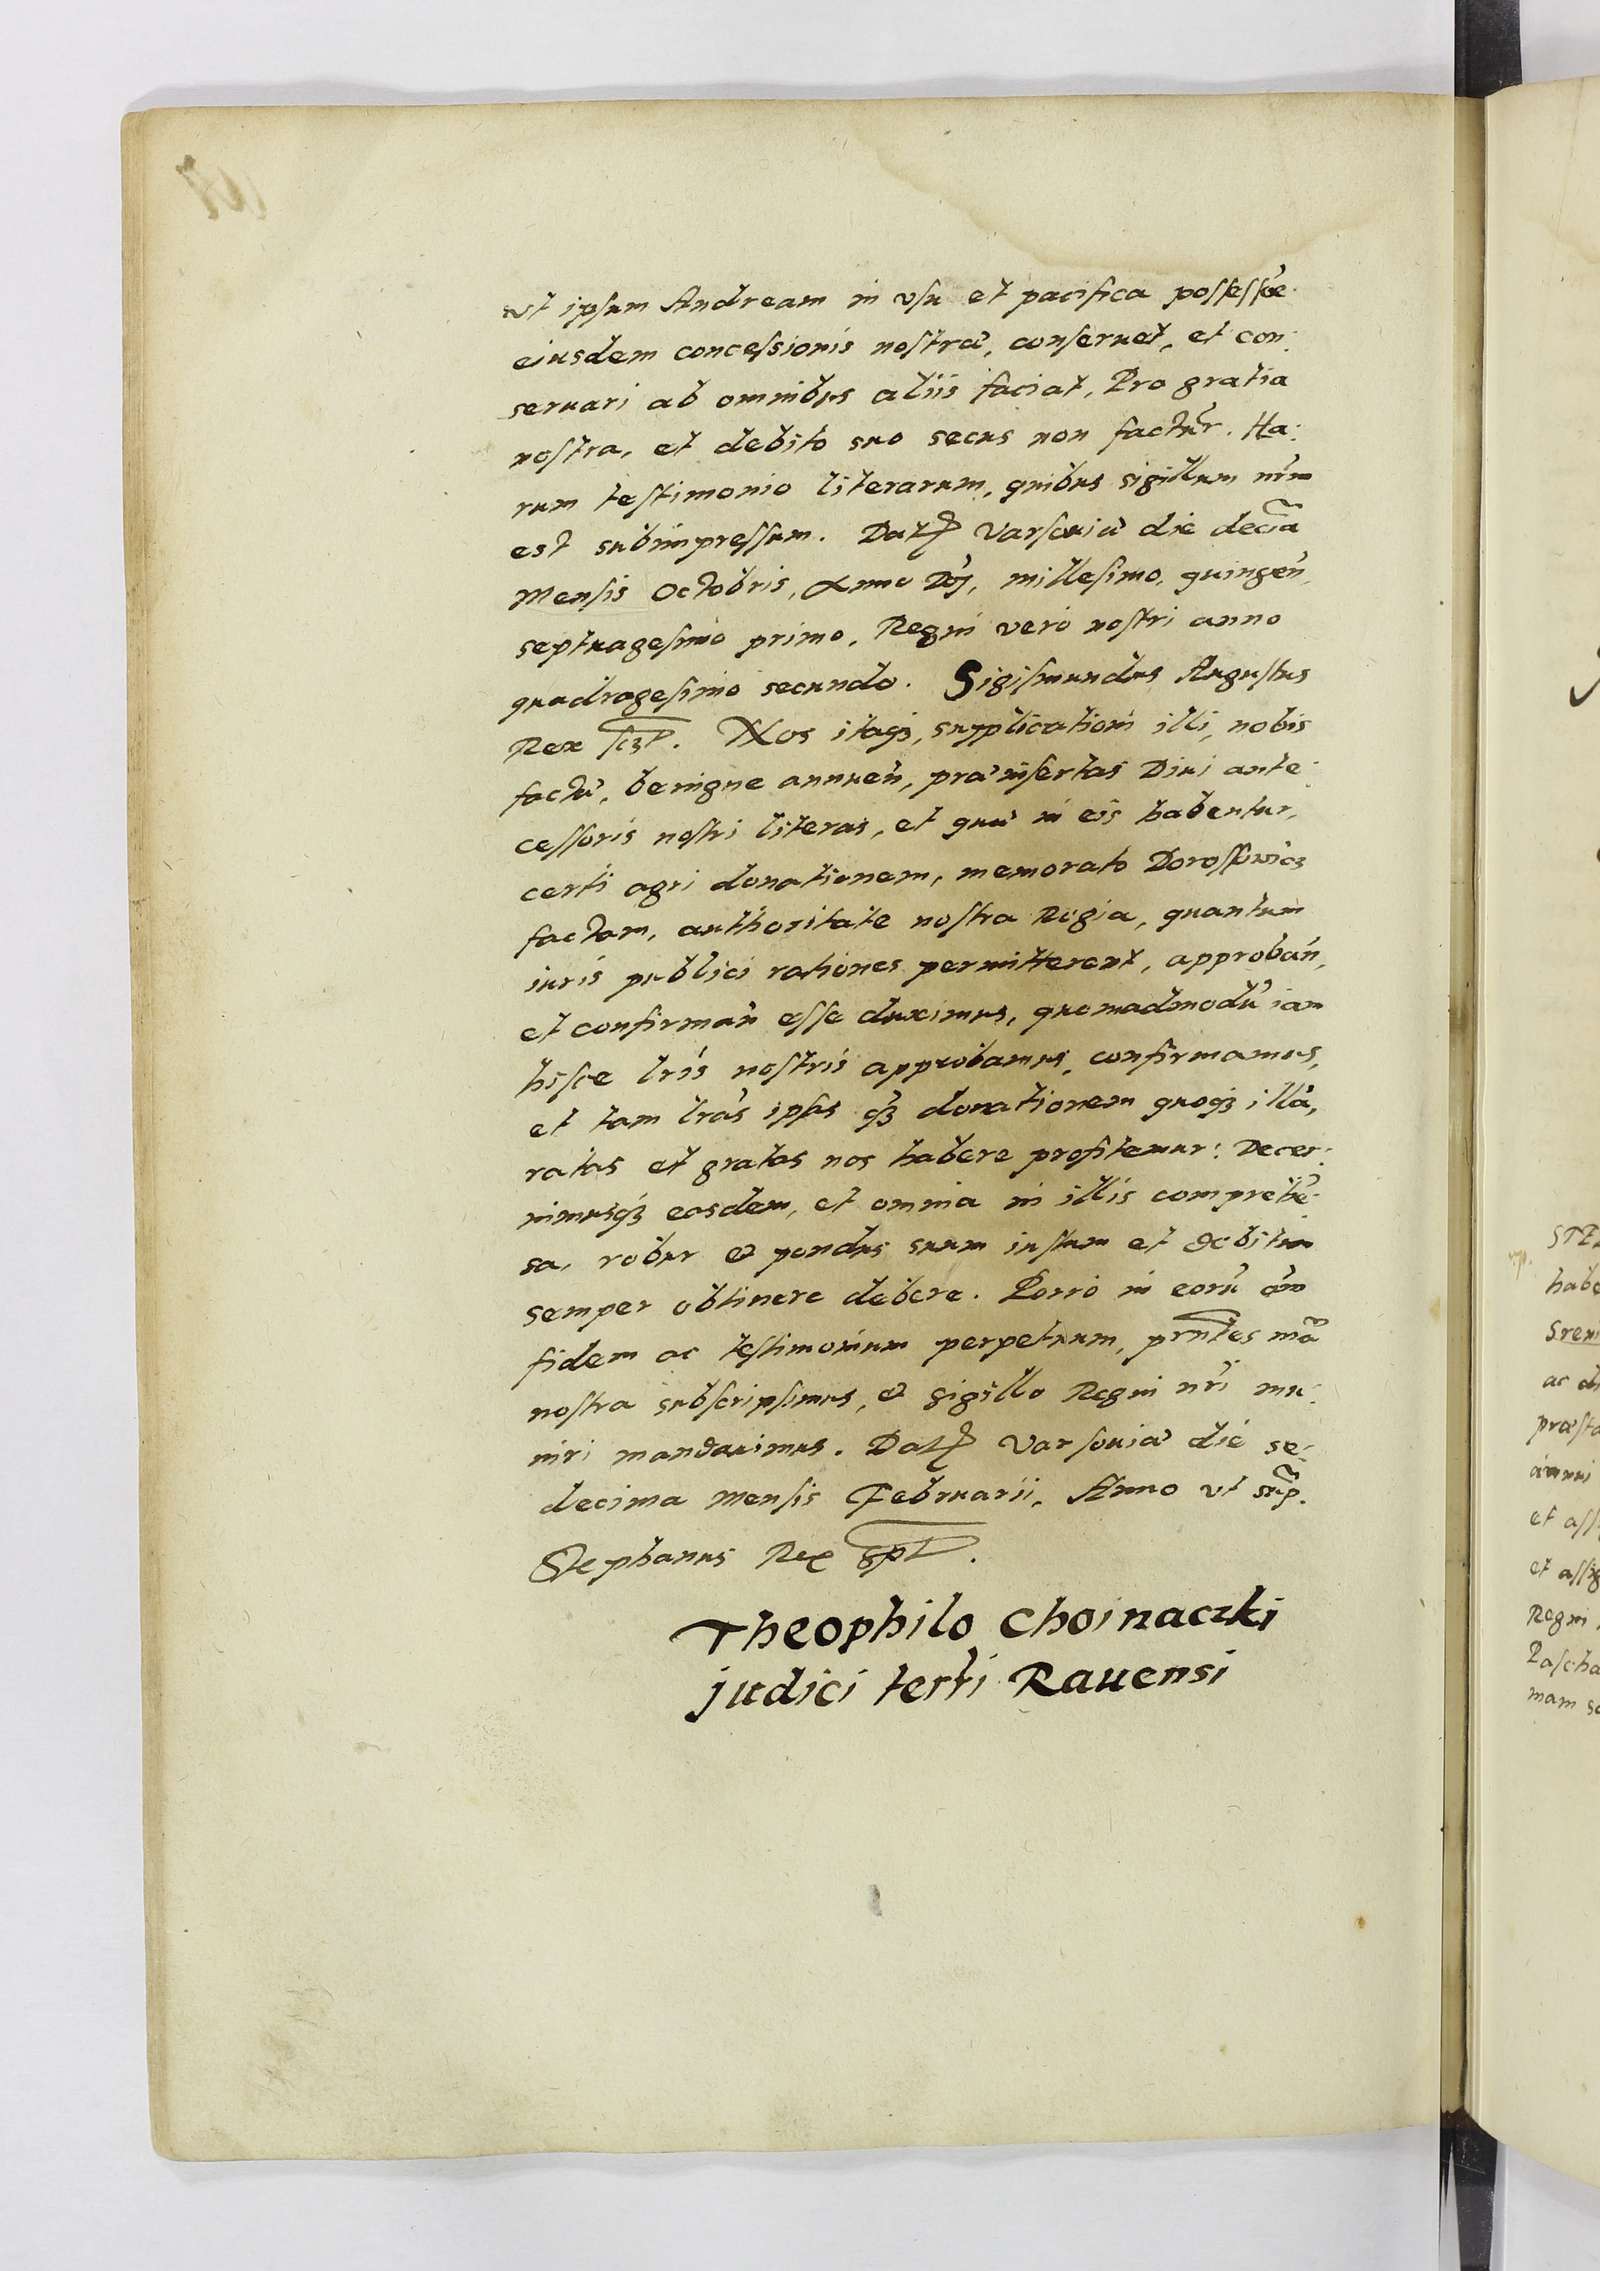 ut ipsum Andream in usu et pacifica possessioe
eiusdem concessionis nostræ, conseruet, et con:
seruari ab omnibus aliis faciat. Pro gratia
nostra, et debito suo secus non factur. Ha:
rum testimonio literarum, quibus sigillum nrm
est subimpressum. Dat Varsouiæ die decia
Mensis Octobris, Anno Dnj, millesimo, quingen,
septuagesimo primo, Regni vero nostri anno
quadragesimo secundo. Sigismundus Augustus
Rex sszt. Nos itaq3, supplicationi illi, nobis
factæ, benigne annuen, præinsertas Diui ante:
cessoris nostri literas, et quæ in eis habentur,
certi agri donationem, memorato Dorossewicz
factam, authoritate nostra Regia, quantum
iuris publici rationes permitterent, approban,
et confirman esse duximus, quemadmodū iam
hisce lris nostris approbamus, confirmamus,
et tam lras ipsas q3 donationem quoq3 illā,
ratas et gratas nos habere profitemur: Decer:
nimusq3 easdem, et omnia in illis comprehē:
sa, robur et pondus suum iustum et debitum
semper obtinere debere. Porro in eorū om
fidem ac testimonium perpetuum, prntes mā
nostra subscripsimus, et sigillo Regni nri mu:
niri mandauimus. Dat Varsouiæ die se:
decima mensis Februarii, Anno ut sup.
Stephanus Rex sspt.
Theophilo Choinaczki
judici terti Rauensi
STE
habe
Sreni
præsta
et ass
et assig
Regni,
Pascha
mam sa